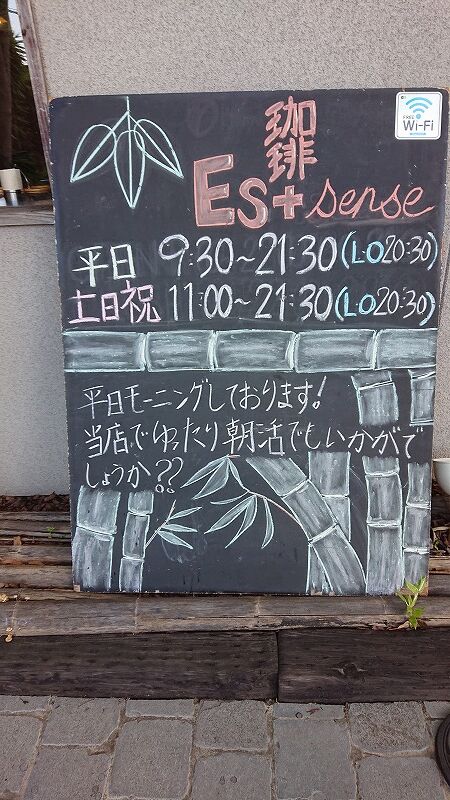 FREE
Wi-Fi
珈琲
Es+ sense
平日 9:30~21:30(LO20:30)
土日祝 11:00~21:30(LO20:30)
平日モーニングしております!
当店でゆったり朝活でもいかがで
しょうか??